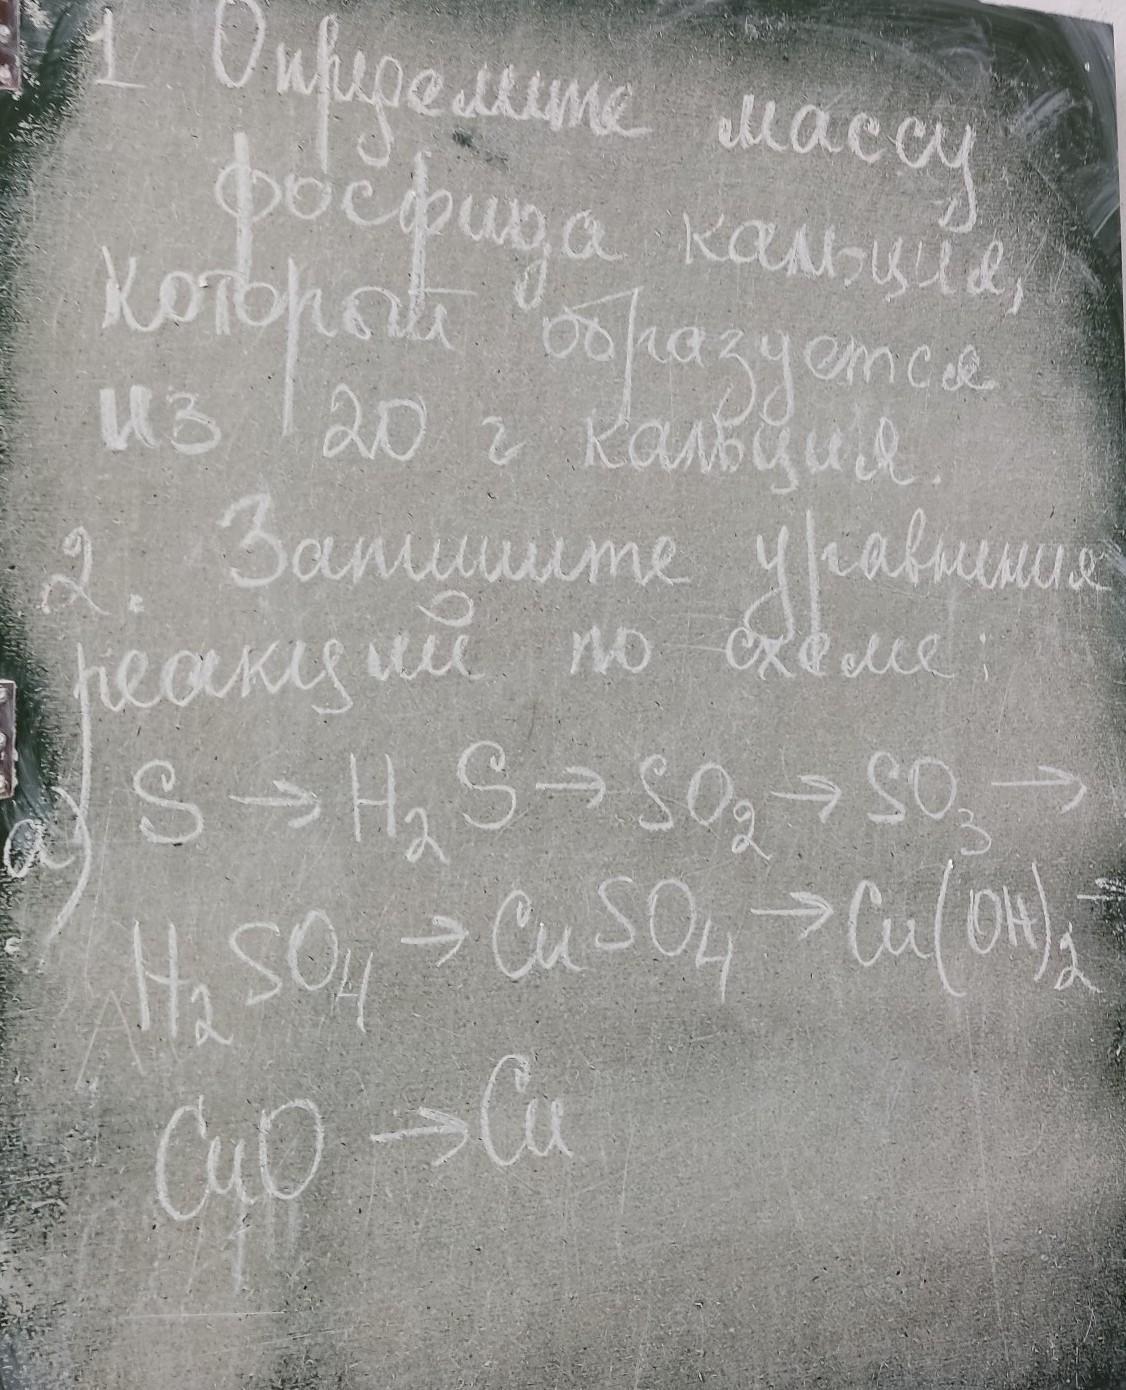 1. Определите массу
фосфида кальция,
который образуется
из 20 г кальция.
2. Запишите уравнения
реакций по схеме:
а) S → H₂S → SO₂ → SO₃ →
H₂SO₄ → CuSO₄ → Cu(OH)₂ →
CuO → Cu